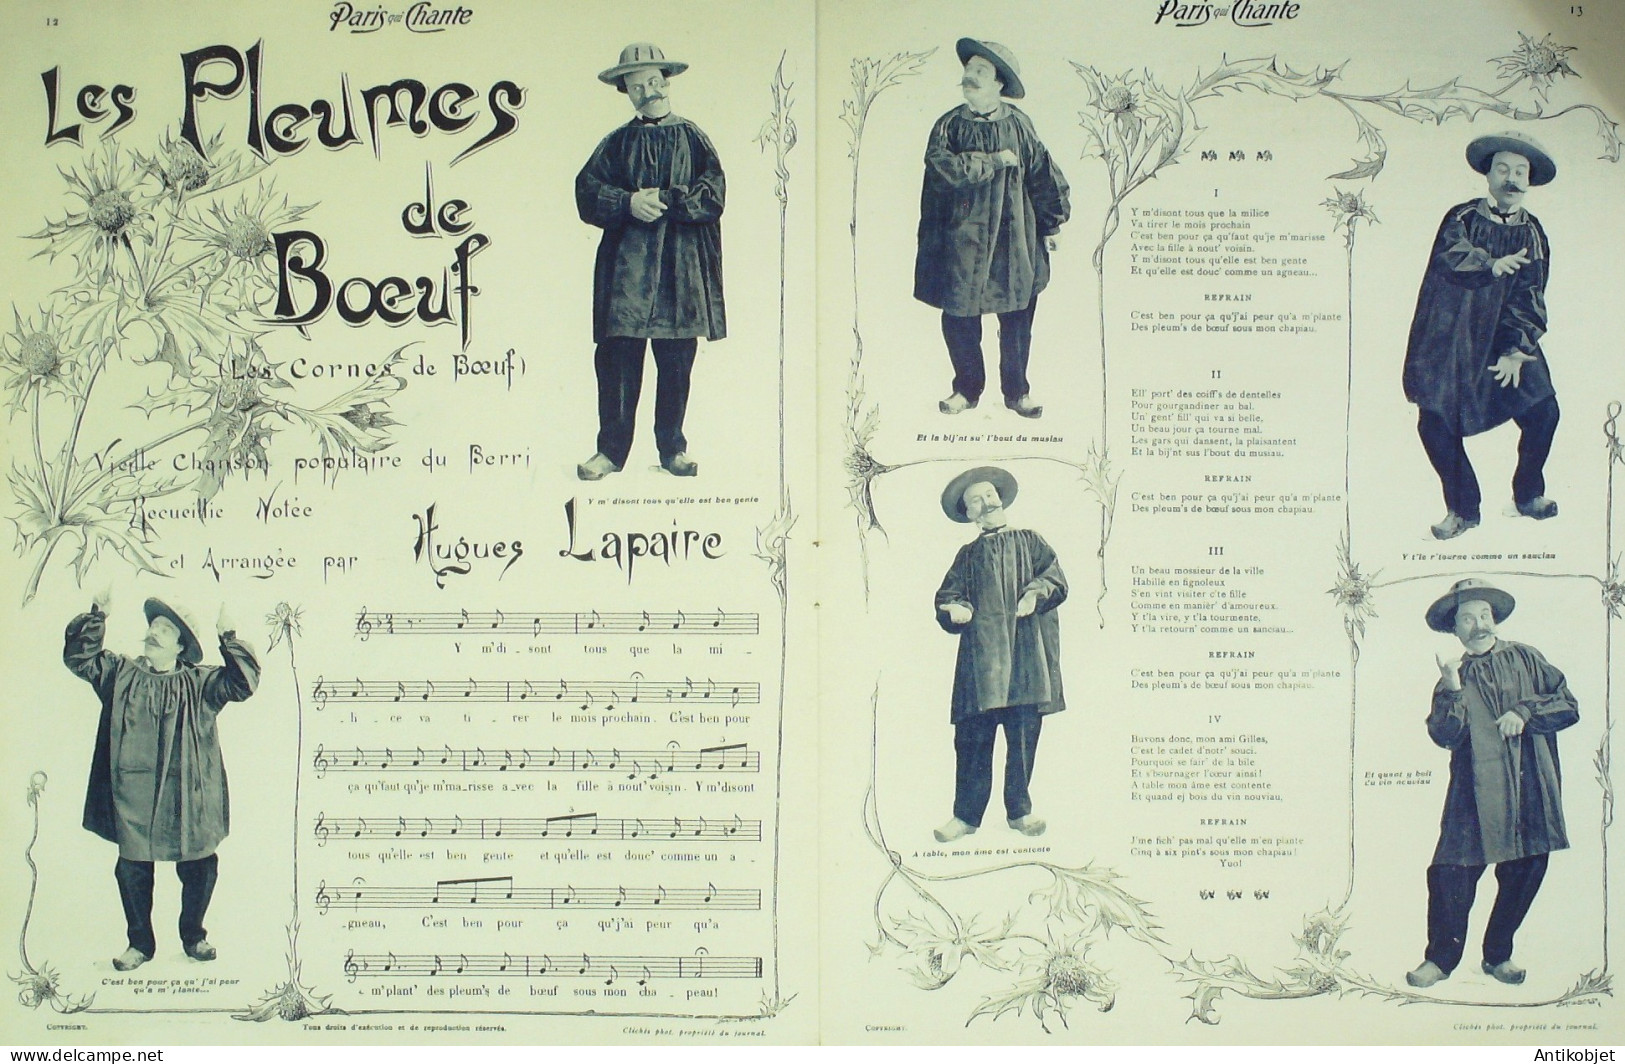 12
Paris qui Chante
Les Pleumes
de
Bœuf
(Les Cornes de Bœuf)
Vieille Chanson populaire du Berri
Recueillie Notée
et Arrangée par Hugues Lapaire
Y m' disont tous qu'elle est ben gente
Y m'di - sont tous que la mi -
- li - ce va ti - rer le mois prochain. C'est ben pour
ça qu'faut qu'je m'ma_risse a_vec la fille à nout' voisin. Y m'disont
tous qu'elle est ben gente et qu'elle est douc' comme un a -
-gneau, C'est ben pour ça qu'j'ai peur qu'a
m'plant' des pleum's de bœuf sous mon cha - peau!
C'est ben pour ça qu' j'ai peur
qu'a m' plante...
COPYRIGHT.
Tous droits d'exécution et de reproduction réservés.
Clichés phot. propriété du journal.
Paris qui Chante
13
Et la bij'nt su' l'bout du musiau
A table, mon âme est contente
I
Y m'disont tous que la milice
Va tirer le mois prochain
C'est ben pour ça qu'faut qu'je m'marisse
Avec la fille à nout' voisin.
Y m'disont tous qu'elle est ben gente
Et qu'elle est douc' comme un agneau...
REFRAIN
C'est ben pour ça qu'j'ai peur qu'a m'plante
Des pleum's de bœuf sous mon chapiau.
II
Ell' port' des coiff's de dentelles
Pour gourgandiner au bal.
Un' gent' fill' qui va si belle,
Un beau jour ça tourne mal.
Les gars qui dansent, la plaisantent
Et la bij'nt sus l'bout du musiau.
REFRAIN
C'est ben pour ça qu'j'ai peur qu'a m'plante
Des pleum's de bœuf sous mon chapiau.
III
Un beau mossieur de la ville
Habillé en fignoleux
S'en vint visiter c'te fille
Comme en manièr' d'amoureux.
Y t'la vire, y t'la tourmente,
Y t'la retourn' comme un sanciau...
REFRAIN
C'est ben pour ça qu'j'ai peur qu'a m'plante
Des pleum's de bœuf sous mon chapiau.
IV
Buvons donc, mon ami Gilles,
C'est le cadet d'notr' souci.
Pourquoi se fair' de la bile
Et s'bournager l'cœur ainsi!
A table mon âme est contente
Et quand ej bois du vin nouviau,
REFRAIN
J'me fich' pas mal qu'elle m'en plante
Cinq à six pint's sous mon chapiau!
Yuo!
Y t'le r'tourne comme un sauciau
Et quant y boit
du vin nouviau
COPYRIGHT.
Clichés phot. propriété du journal.
Antikobjet - delcampe.net